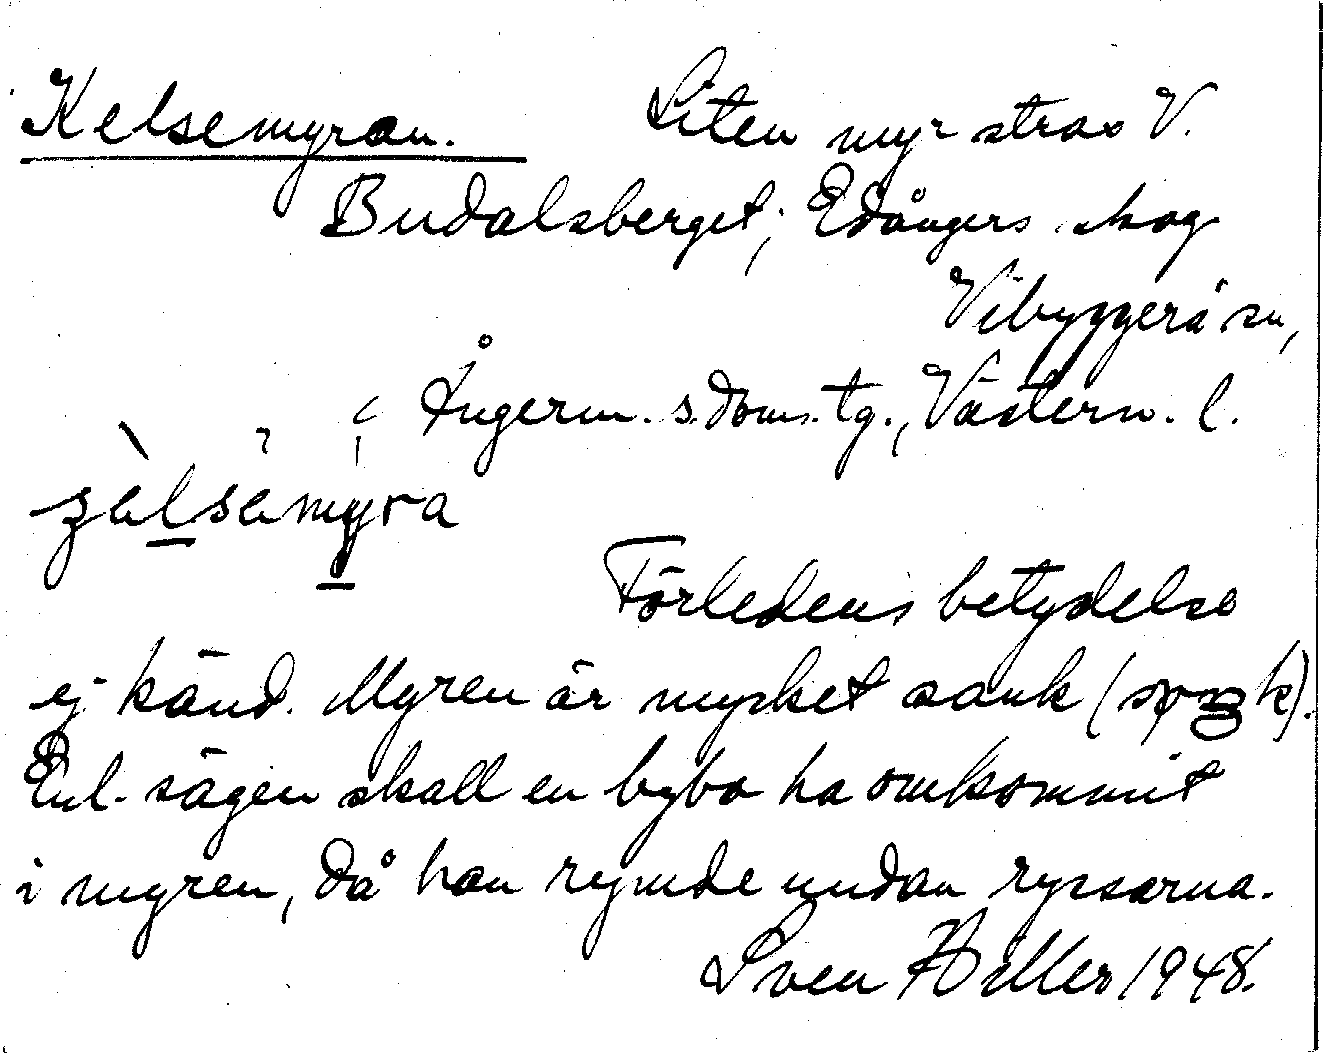 Kelsemyran. Liten myr strax V.
Budalsberget, Edångers skog
Vibyggerå sn,
Ångerm. s. doms. tg., Västern. l.
Förledens betydelse
ej känd. Myren är mycket sank
Enl. sägen skall en bybo ha omkommit
i myren, då han rymde undan ryssarna.
Sven Hiller 1948.